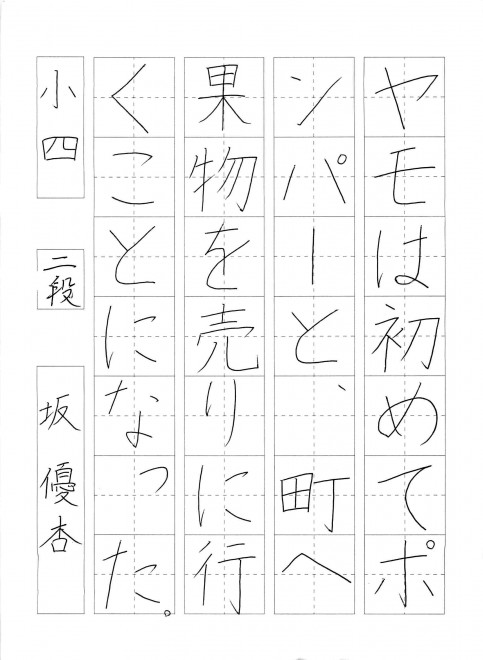 ヤモは初めてポ
ンパーと、町へ
果物を売りに行
くことになった。
小四
二段
坂優杏